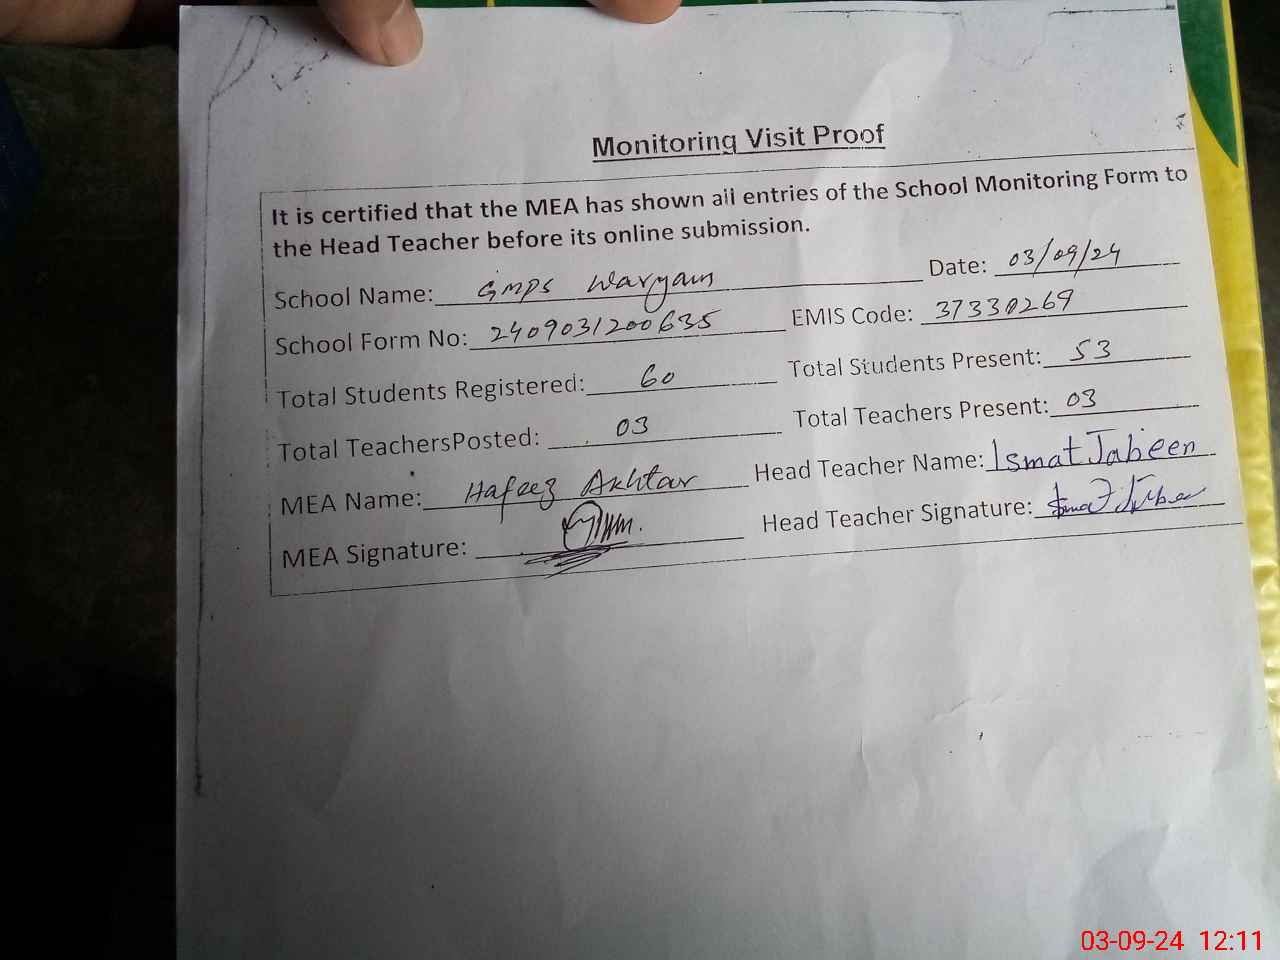 Monitoring Visit Proof
It is certified that the MEA has shown all entries of the School Monitoring Form to
the Head Teacher before its online submission.
School Name: GMPS Waryam Date: 03/09/24
School Form No: 2409031200635 EMIS Code: 37330269
Total Students Registered: 60 Total Students Present: 53
Total TeachersPosted: 03 Total Teachers Present: 03
MEA Name: Hafeez Akhtar Head Teacher Name: Ismat Jabeen
MEA Signature: Head Teacher Signature: Ismat Jabeen
03-09-24 12:11